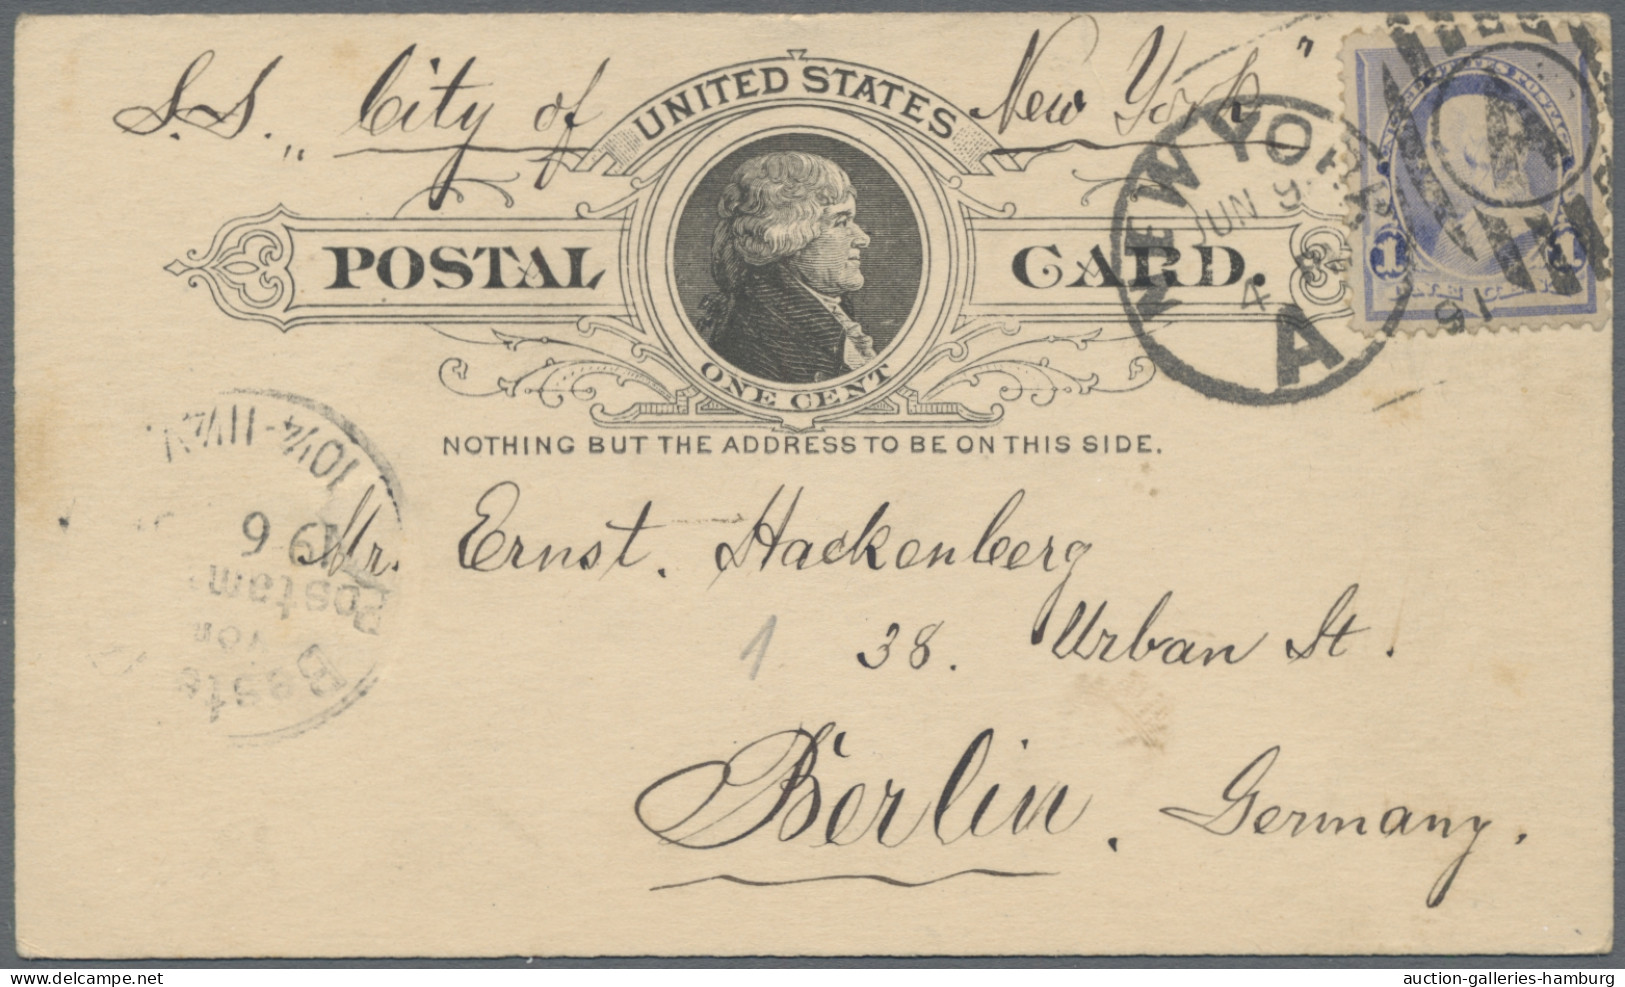 S.S. „City of New York"
UNITED STATES
POSTAL CARD.
ONE CENT
NOTHING BUT THE ADDRESS TO BE ON THIS SIDE.
NEW YORK
JUN 9
4
A
91
1 1
10¼-11¼
19 6
Mr. Ernst. Hackenberg
1
38. Urban St.
Berlin. Germany.
delcampe.net
auction-galleries-hamburg